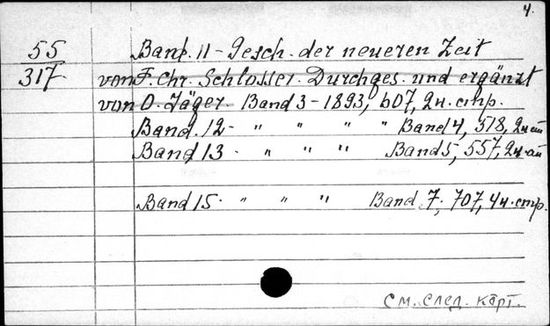 4.
55
317.
Band. 11 - Gesch. der neueren Zeit
von F. Chr. Schlosser. Durchges. und ergänzt
von O. Jäger. Band 3 - 1893, 607, 2н. стр.
Band. 12 - " " " " Band 4, 518, 2н
Band 13 - " " " Band 5, 557, 2н
Band 15 - " " " Band 7, 707, 4н. стр.
См. след. карт.